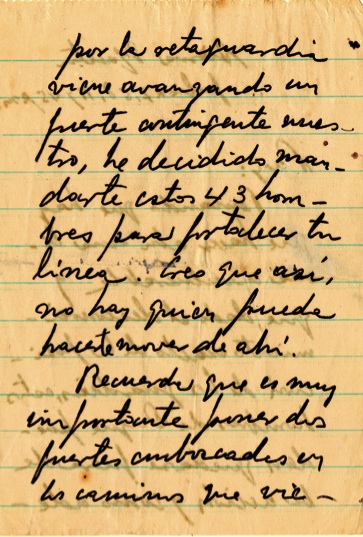 por la retaguardia
viene avanzando un
fuerte contingente nues-
tro, he decidido man-
darte estos 43 hom-
bres para fortalecer tu
línea. Creo que así,
no hay quien pueda
hacerte mover de ahí.
Recuerda que es muy
importante poner dos
fuertes emboscadas en
los caminos que vie-